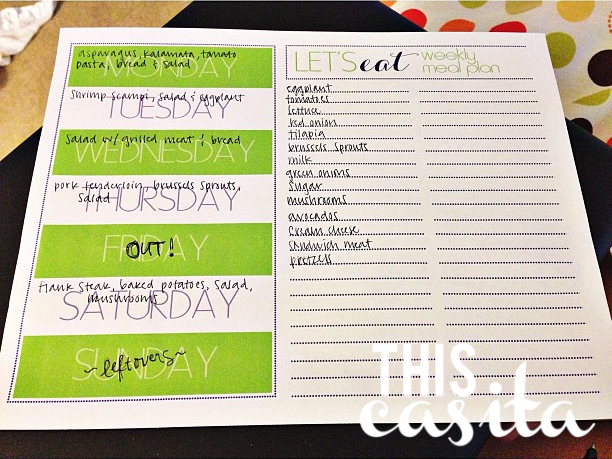 asparagus, kalamata, tomato
pasta, bread & salad
MONDAY
shrimp scampi, salad & eggplant
TUESDAY
salad w/ grilled meat & bread
WEDNESDAY
pork tenderloin, brussels sprouts,
salad
THURSDAY
FRIDAY
OUT!
flank steak, baked potatoes, salad,
mushrooms
SATURDAY
SUNDAY
~leftovers~
LET'S eat weekly
meal plan
eggplant
tomatoes
lettuce
red onion
tilapia
brussels sprouts
milk
green onions
sugar
mushrooms
avocados
cream cheese
sandwich meat
pretzels
THIS
casita